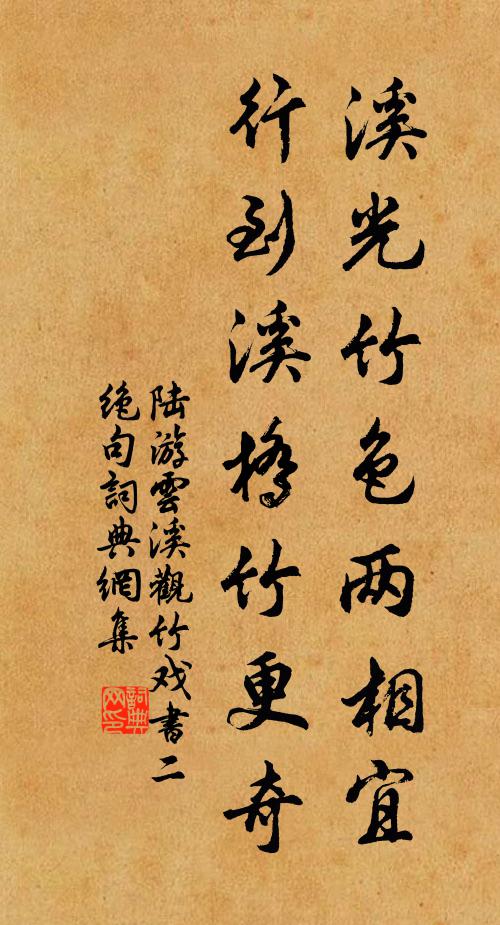 溪光竹色两相宜
行到溪橋竹更奇
陆游雲溪觀竹戏書二
絶句詞典網集
詞典网印